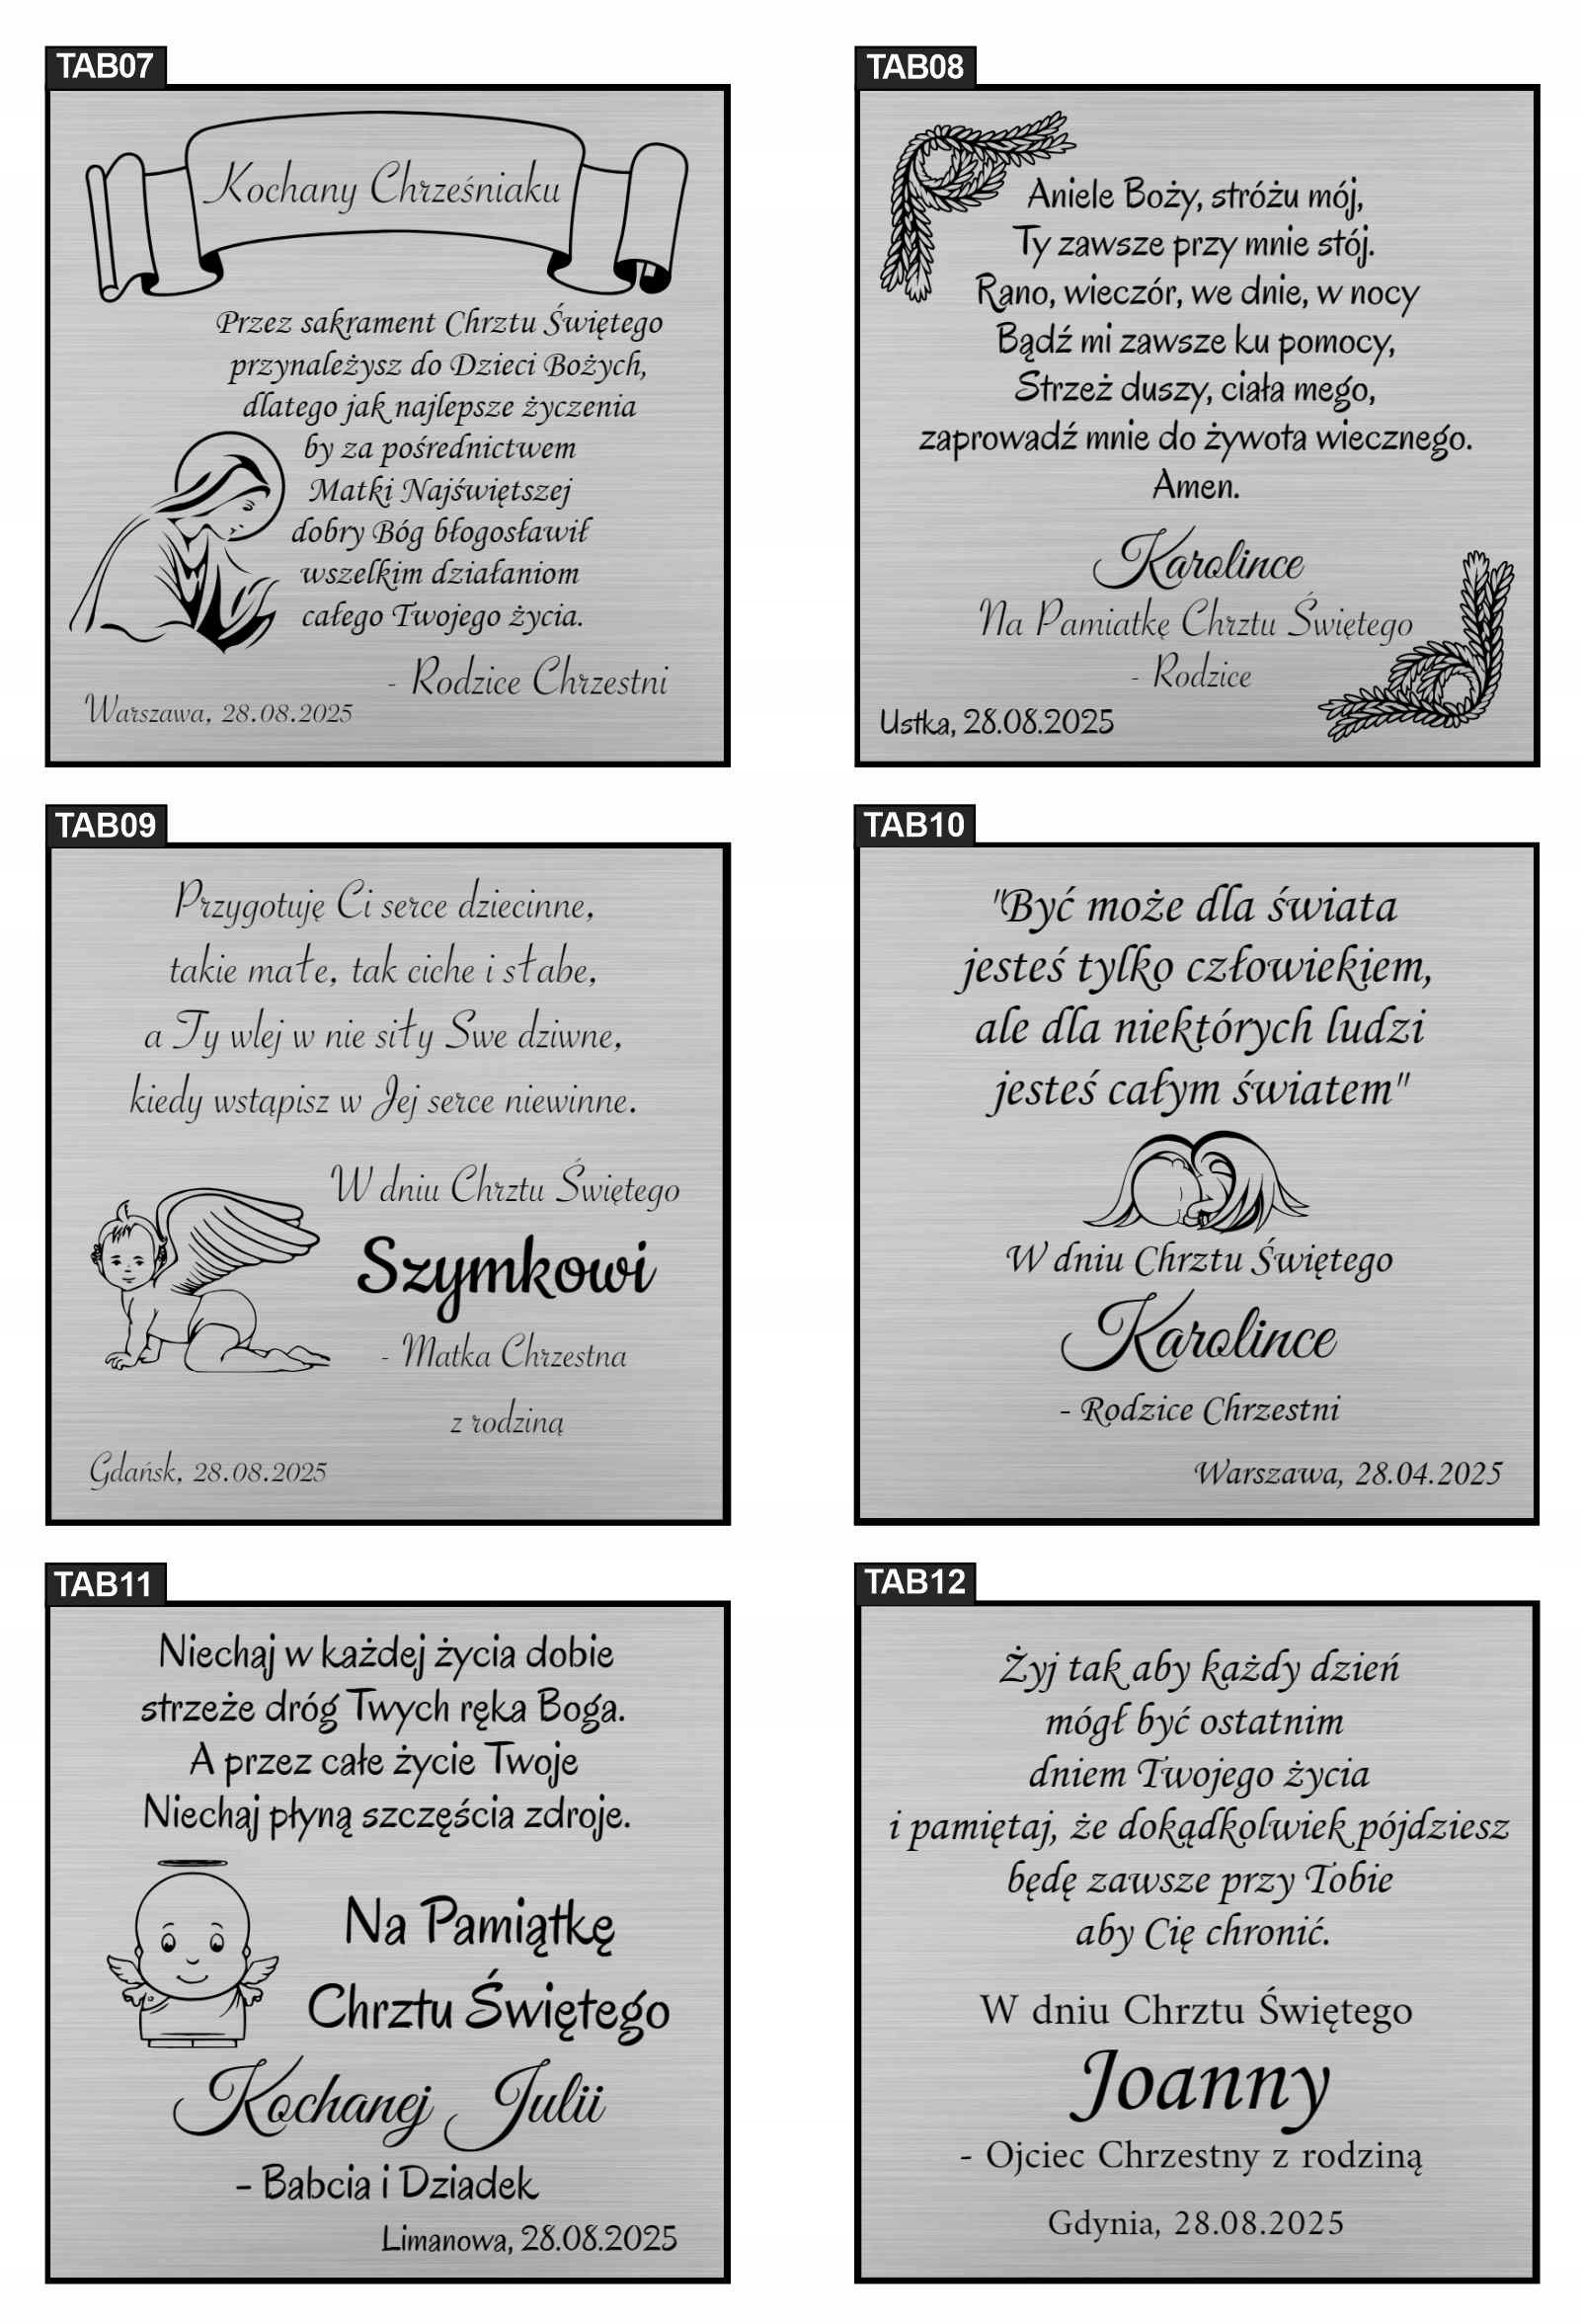 TAB07
Kochany Chrześniaku
Przez sakrament Chrztu Świętego
przynależysz do Dzieci Bożych,
dlatego jak najlepsze życzenia
by za pośrednictwem
Matki Najświętszej
dobry Bóg błogosławił
wszelkim działaniom
całego Twojego życia.
- Rodzice Chrzestni
Warszawa, 28.08.2025
TAB08
Aniele Boży, stróżu mój,
Ty zawsze przy mnie stój.
Rano, wieczór, we dnie, w nocy
Bądź mi zawsze ku pomocy,
Strzeż duszy, ciała mego,
zaprowadź mnie do żywota wiecznego.
Amen.
Karolince
Na Pamiatkę Chrztu Świętego
- Rodzice
Ustka, 28.08.2025
TAB09
Przygotuję Ci serce dziecinne,
takie małe, tak ciche i słabe,
a Ty wlej w nie siły Swe dziwne,
kiedy wstąpisz w Jej serce niewinne.
W dniu Chrztu Świętego
Szymkowi
- Matka Chrzestna
z rodziną
Gdańsk, 28.08.2025
TAB10
"Być może dla świata
jesteś tylko człowiekiem,
ale dla niektórych ludzi
jesteś całym światem"
W dniu Chrztu Świętego
Karolince
- Rodzice Chrzestni
Warszawa, 28.04.2025
TAB11
Niechaj w każdej życia dobie
strzeże dróg Twych ręka Boga.
A przez całe życie Twoje
Niechaj płyną szczęścia zdroje.
Na Pamiątkę
Chrztu Świętego
Kochanej Julii
- Babcia i Dziadek
Limanowa, 28.08.2025
TAB12
Żyj tak aby każdy dzień
mógł być ostatnim
dniem Twojego życia
i pamiętaj, że dokądkolwiek pójdziesz
będę zawsze przy Tobie
aby Cię chronić.
W dniu Chrztu Świętego
Joanny
- Ojciec Chrzestny z rodziną
Gdynia, 28.08.2025